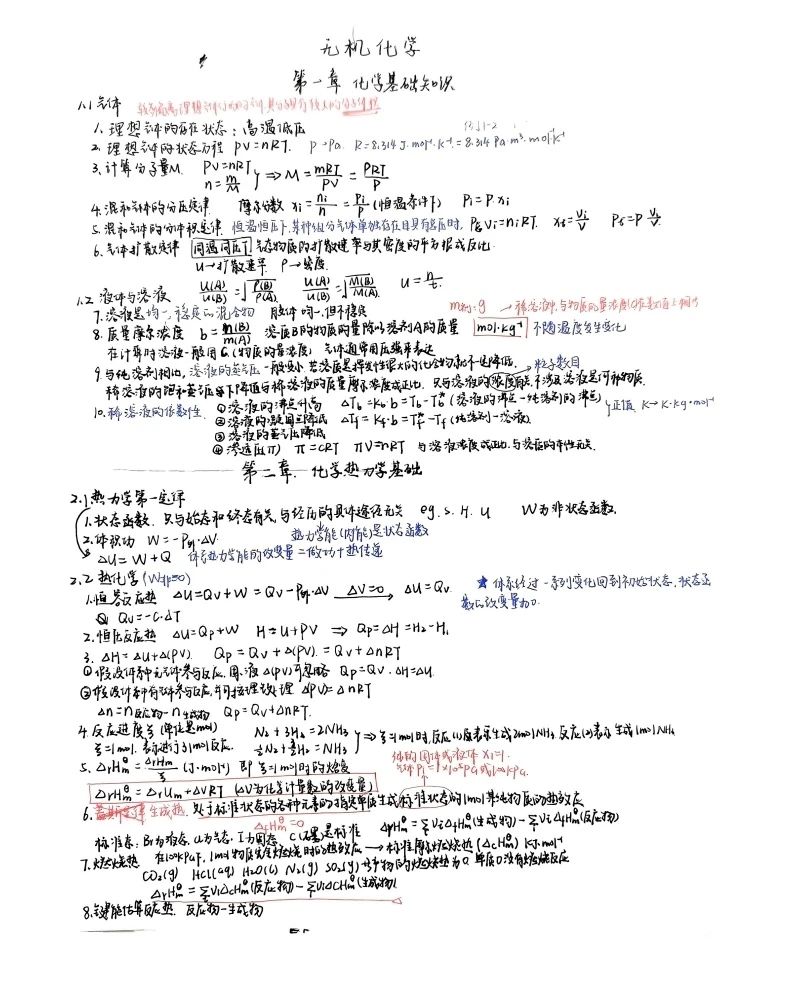 无机化学
第一章 化学基础知识
1.1 气体
1. 理想气体的存在状态：高温低压
例1-2
2. 理想气体的状态方程 PV=nRT. P→Pa. R=8.314 J·mol⁻¹·K⁻¹=8.314 Pa·m³·mol⁻¹K⁻¹
3. 计算分子量M. PV=nRT n=m/M } ⇒ M=mRT/PV=ρRT/P
4. 混和气体的分压定律 摩尔分数 xi=ni/n=Pi/P (恒温条件下) Pi=P xi
5. 混和气体的分体积定律 恒温恒压下,某种组分气体单独存在且具有总压时,P总Vi=niRT. xi=Vi/V
6. 气体扩散定律 同温同压下 气态物质的扩散速率与其密度的平方根成反比.
u→扩散速率 ρ→密度
u(A)/u(B)=√ρ(B)/ρ(A) u(A)/u(B)=√M(B)/M(A)
1.2 液体与溶液
7. 溶液是均一,稳定的混合物 胶体均一,但不稳定
8. 质量摩尔浓度 b=n(B)/m(A) 溶质B的物质的量除以溶剂A的质量 mol·kg⁻¹ 不随温度发生变化
在计算时溶液一般用C(物质的量浓度) 气体通常用压强来表达
9. 与纯溶剂相比,溶液的蒸气压一般要小
粒子数目
稀溶液的饱和蒸气压等下降值与稀溶液的质量摩尔浓度成正比. 只与溶液的浓度有关,不涉及溶质是何种物质.
10. 稀溶液的依数性 ①溶液的沸点升高 ΔTb=Kb·b=Tb-Tb* (溶液的沸点-纯溶剂的沸点)
②溶液的凝固点降低 ΔTf=Kf·b=Tf*-Tf (纯溶剂-溶液) } 正值 K→K·kg·mol⁻¹
③溶液的蒸气压降低
④渗透压(π) π=cRT πV=nRT 与溶液浓度成正比,与溶质的本性无关.
第二章. 化学热力学基础
2.1 热力学第一定律
1. 状态函数. 只与始态和终态有关,与经历的具体途径无关 eg. S. H. U W为非状态函数
2. 体积功 W=-P外·ΔV. 热力学能(内能)是状态函数
ΔU=W+Q 体系热力学能的改变量=做功+热传递
2.2 热化学 (W非=0)
1. 恒容反应热 ΔU=Qv+W=Qv-P外·ΔV ΔV=0 ΔU=Qv
★ 体系经过一系列变化回到初始状态,状态函数的改变量为0.
Qv=-C·ΔT
2. 恒压反应热 ΔU=Qp+W H=U+PV ⇒ Qp=ΔH=H₂-H₁
3. ΔH=ΔU+Δ(PV). Qp=Qv+Δ(PV)=Qv+ΔnRT
①假设体系中无气体参与反应,固.液 Δ(PV)可忽略 Qp=Qv. ΔH=ΔU.
②假设体系中有气体参与反应,可按理想处理 Δ(PV)=ΔnRT
Δn=n反应物-n生成物 Qp=Qv+ΔnRT.
4. 反应进度ξ (单位是mol) N₂+3H₂=2NH₃
ξ=1mol. 表示进行了1mol反应. ½N₂+3/2H₂=NH₃ } ⇒ ξ=1mol时,反应(1)表示生成2molNH₃ 反应(2)表示生成1molNH₃
5. ΔrHmθ=ΔrHm/ξ (J·mol⁻¹) 即ξ=1mol时的焓变
纯的固体或液体 Xi=1.
气体Pi=1×10⁵Pa或100kPa.
ΔrHmθ=ΔrUm+ΔνRT (Δν为化学计量数的改变量)
6. 生成热. 处于标准状态的各种元素的指定单质生成标准状态的1mol某纯物质的热效应
ΔfHmθ=0
标准态: Br为液态. Cl为气态. I为固态 C(石墨)是标准 ΔrHmθ=ΣνiΔfHmθ(生成物)-ΣνiΔfHmθ(反应物)
7. 燃烧热 在100kPa下,1mol物质完全燃烧时的热效应→标准摩尔燃烧热(ΔcHmθ) KJ·mol⁻¹
CO₂(g) HCl(aq) H₂O(l) N₂(g) SO₂(g)等产物的燃烧热为0 单质O没有燃烧反应
ΔrHmθ=ΣνiΔcHmθ(反应物)-ΣνiΔcHmθ(生成物)
8. 键能估算反应热. 反应物-生成物